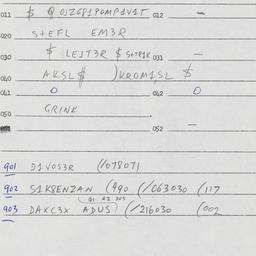 011 $ Q 0JZ681POMPJV1T 012 –
020 STEFL EM3R
030 $ LEJT3R $ S+TRIK 031 –
040 AKSL $ )KROM1SL $
041 0 042 0
050 GRINK
052 –
901 D1VOS3R (/078071
902 S1K8ENZAN (990 (/063030 (117
91 92 905
903 DAXC3X ADUS) (/216030 (002